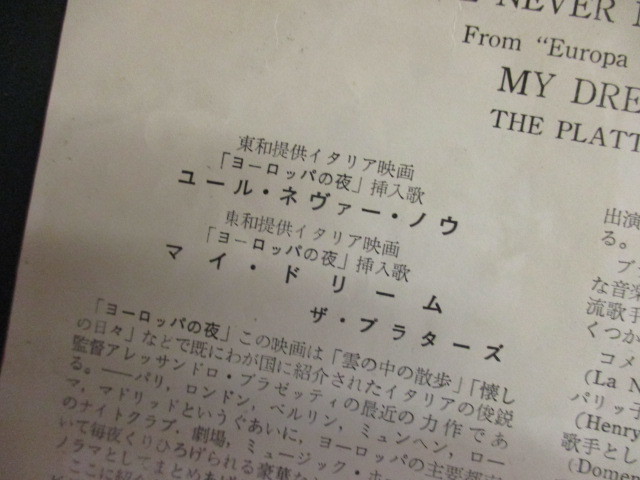 NEVER
From "Europa
MY DRE
THE PLATT
東和提供イタリア映画
「ヨーロッパの夜」挿入歌
ユール・ネヴァー・ノウ
東和提供イタリア映画
「ヨーロッパの夜」挿入歌
マイ・ドリーム
ザ・プラターズ
「ヨーロッパの夜」この映画は「雲の中の散歩」「懐し
の日々」などで既にわが国に紹介されたイタリアの俊鋭
監督アレッサンドロ・ブラゼッティの最近の力作であ
る。――パリ，ロンドン，ベルリン，ミュンヘン，ロー
マ，マドリッドというぐあいに，ヨーロッパの主要都市
のナイトクラブ，劇場，ミュージック・ホー
いて毎夜くりひろげられる豪華な
ノラマとしてまとめあげ
ここに紹介
出演
る。
ブ
な音楽
流歌手
くつか
コメ
(La N
パリッ子
(Henry
歌手とし
(Domen